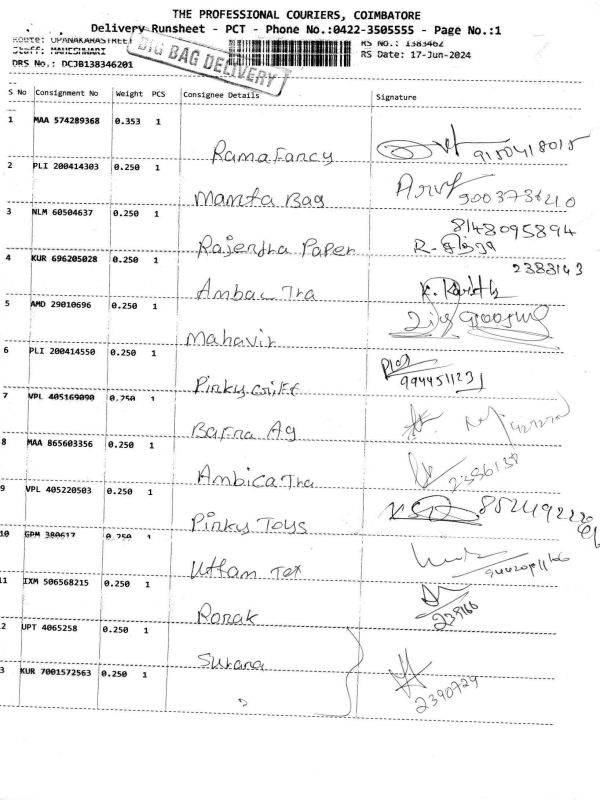 THE PROFESSIONAL COURIERS, COIMBATORE
Delivery Runsheet - PCT - Phone No.:0422-3505555 - Page No.:1
Route: OPANAKARASTREET
BIG BAG DELIVERY
RS No.: 1383462
Staff: MAHESHWARI
RS Date: 17-Jun-2024
DRS No.: DCJB138346201
S No Consignment No Weight PCS Consignee Details Signature
1 MAA 574289368 0.353 1
Rama Fancy 9150418015
2 PLI 200414303 0.250 1
Mamta Bag
3 NLM 60504637 0.250 1 8148095894
Rajentra Paper
4 KUR 696205028 0.250 1 2388143
Ambac Tra
5 AMD 29010696 0.250 1
Mahavir
6 PLI 200414550 0.250 1
Pinky Giff
7 VPL 405169090 0.250 1
Barna Ag
8 MAA 865603356 0.250 1
Ambica Tra
9 VPL 405220503 0.250 1
Pinky Toys
10 GPM 380617 0.250 1
Uttam Tex
11 IXM 506568215 0.250 1
Ronak
2 UPT 4065258 0.250 1
Surana
3 KUR 7001572563 0.250 1
2390729